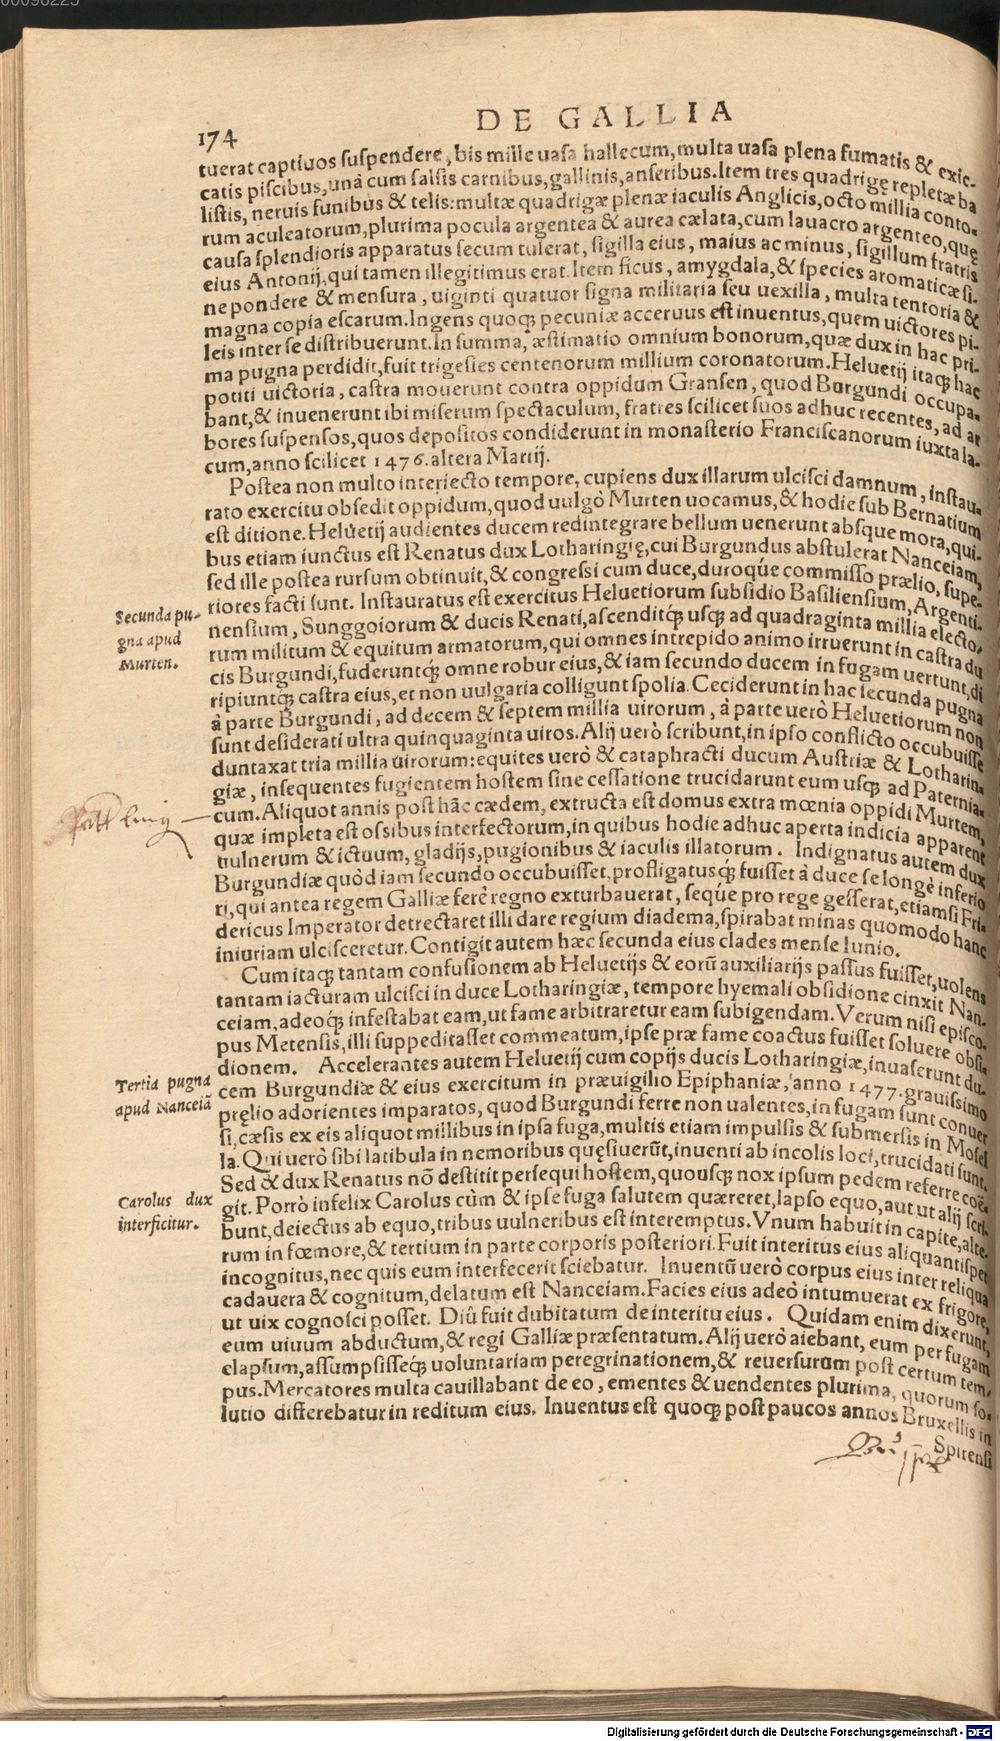 00096225
DE GALLIA
174
tuerat captiuos suspendere, bis mille uasa hallecum, multa uasa plena fumatis & exic-
catis piscibus, unà cum salsis carnibus, gallinis, anseribus. Item tres quadrigę repletæ ba
listis, neruis funibus & telis: multæ quadrigæ plenæ iaculis Anglicis, octo millia conto-
rum aculeatorum, plurima pocula argentea & aurea cælata, cum lauacro argenteo, quę
causa splendioris apparatus secum tulerat, sigilla eius, maius ac minus, sigillum fratris
eius Antonij, qui tamen illegitimus erat. Item ficus, amygdala, & species aromaticæ si-
ne pondere & mensura, uiginti quatuor signa militaria seu uexilla, multa tentoria &
magna copia escarum. Ingens quoq; pecuniæ aceruus est inuentus, quem uictores pi-
leis inter se distribuerunt. In summa, æstimatio omnium bonorum, quæ dux in hac pri-
ma pugna perdidit, fuit trigesies centenorum millium coronatorum. Heluetij itaq; hac
potiti uictoria, castra mouerunt contra oppidum Gransen, quod Burgundi occupa-
bant, & inuenerunt ibi miserum spectaculum, fratres scilicet suos adhuc recentes, ad ar
bores suspensos, quos depositos condiderunt in monasterio Franciscanorum iuxta la-
cum, anno scilicet 1476. altera Martij.
Postea non multo interiecto tempore, cupiens dux illarum ulcisci damnum, instau-
rato exercitu obsedit oppidum, quod uulgò Murten uocamus, & hodie sub Bernatium
est ditione. Heluetij audientes ducem redintegrare bellum uenerunt absque mora, qui-
bus etiam iunctus est Renatus dux Lotharingię, cui Burgundus abstulerat Nanceiam,
sed ille postea rursum obtinuit, & congressi cum duce, duroq́ue commisso prælio, supe-
riores facti sunt. Instauratus est exercitus Heluetiorum subsidio Basiliensium, Argenti-
Secunda pu-
gna apud
Murten.
nensium, Sunggoiorum & ducis Renati, ascenditq́; usq; ad quadraginta millia electo,
rum militum & equitum armatorum, qui omnes intrepido animo irruerunt in castra du
cis Burgundi, fuderuntq́; omne robur eius, & iam secundo ducem in fugam uertunt, di
ripiuntq́; castra eius, et non uulgaria colligunt spolia. Ceciderunt in hac secunda pugna
à parte Burgundi, ad decem & septem millia uirorum, à parte uerò Heluetiorum non
sunt desiderati ultra quinquaginta uiros. Alij uerò scribunt, in ipso conflicto occubuisse
duntaxat tria millia uirorum: equites uerò & cataphracti ducum Austriæ & Lotharin-
giæ, insequentes fugientem hostem sine cessatione trucidarunt eum usq; ad Paternia-
cum. Aliquot annis post hãc cædem, extructa est domus extra mœnia oppidi Murtem,
quæ impleta est ossibus interfectorum, in quibus hodie adhuc aperta indicia apparent
uulnerum & ictuum, gladijs, pugionibus & iaculis illatorum. Indignatus autem dux
Burgundiæ quòd iam secundo occubuisset, profligatusq́; fuisset à duce se longè inferio
ri, qui antea regem Galliæ ferè regno exturbauerat, seq́ue pro rege gesserat, etiamsi Fri-
dericus Imperator detrectaret illi dare regium diadema, spirabat minas quomodo hanc
iniuriam ulcisceretur. Contigit autem hæc secunda eius clades mense Iunio.
Cum itaq; tantam confusionem ab Heluetijs & eorũ auxiliarijs passus fuisset, uolens
tantam iacturam ulcisci in duce Lotharingiæ, tempore hyemali obsidione cinxit Nan-
ceiam, adeoq́; infestabat eam, ut fame arbitraretur eam subigendam. Verum nisi episco-
pus Metensis, illi suppeditasset commeatum, ipse præ fame coactus fuisset soluere obsi-
dionem. Accelerantes autem Heluetij cum copijs ducis Lotharingiæ, inuaserunt du-
Tertia pugna
apud Nanceiã
cem Burgundiæ & eius exercitum in præuigilio Epiphaniæ, anno 1477. grauissimo
pręlio adorientes imparatos, quod Burgundi ferre non ualentes, in fugam sunt conuer
si, cæsis ex eis aliquot millibus in ipsa fuga, multis etiam impulsis & submersis in Mosel
la. Qui uerò sibi latibula in nemoribus quęsiuerũt, inuenti ab incolis loci, trucidati sunt.
Sed & dux Renatus nõ destitit persequi hostem, quousq; nox ipsum pedem referre coë-
Carolus dux
interficitur.
git. Porrò infelix Carolus cùm & ipse fuga salutem quæreret, lapso equo, aut ut alij scri-
bunt, deiectus ab equo, tribus uulneribus est interemptus. Vnum habuit in capite, alte-
rum in fœmore, & tertium in parte corporis posteriori. Fuit interitus eius aliquantisper
incognitus, nec quis eum interfecerit sciebatur. Inuentũ uerò corpus eius inter reliqua
cadauera & cognitum, delatum est Nanceiam. Facies eius adeò intumuerat ex frigore,
ut uix cognosci posset. Diû fuit dubitatum de interitu eius. Quidam enim dixerunt,
eum uiuum abductum, & regi Galliæ præsentatum. Alij uerò aiebant, eum per fugam
elapsum, assumpsisseq́; uoluntariam peregrinationem, & reuersurum post certum tem-
pus. Mercatores multa cauillabant de eo, ementes & uendentes plurima, quorum so-
lutio differebatur in reditum eius. Inuentus est quoq; post paucos annos Bruxellis in
Spirensi
Digitalisierung gefördert durch die Deutsche Forschungsgemeinschaft - DFG